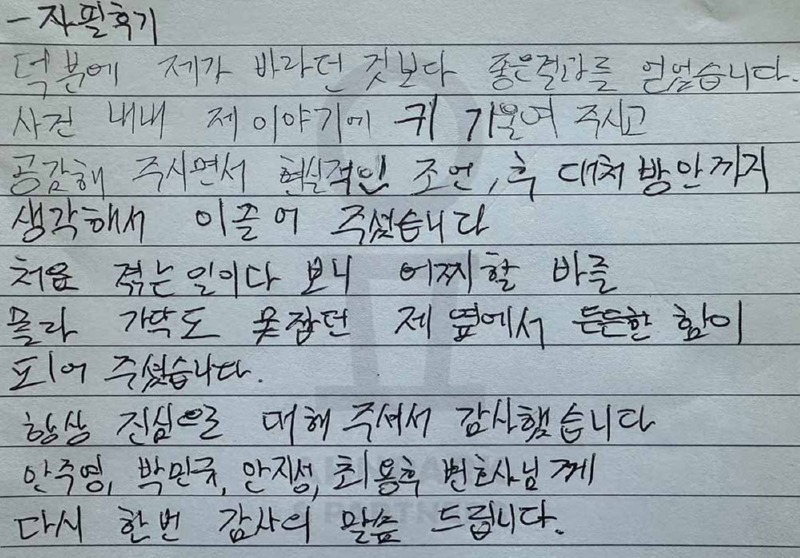 - 자필후기
덕분에 제가 바라던 것보다 좋은결과를 얻었습니다.
사건 내내 제 이야기에 귀 기울여 주시고
공감해 주시면서 현실적인 조언, 후 대처 방안까지
생각해서 이끌어 주셨습니다
처음 겪는일이다 보니 어찌할 바를
몰라 가닥도 못잡던 제 옆에서 든든한 힘이
되어 주셨습니다.
항상 진심으로 대해 주셔서 감사했습니다
안주영, 박민국, 안지성, 최용후 변호사님께
다시 한번 감사의 말씀 드립니다.